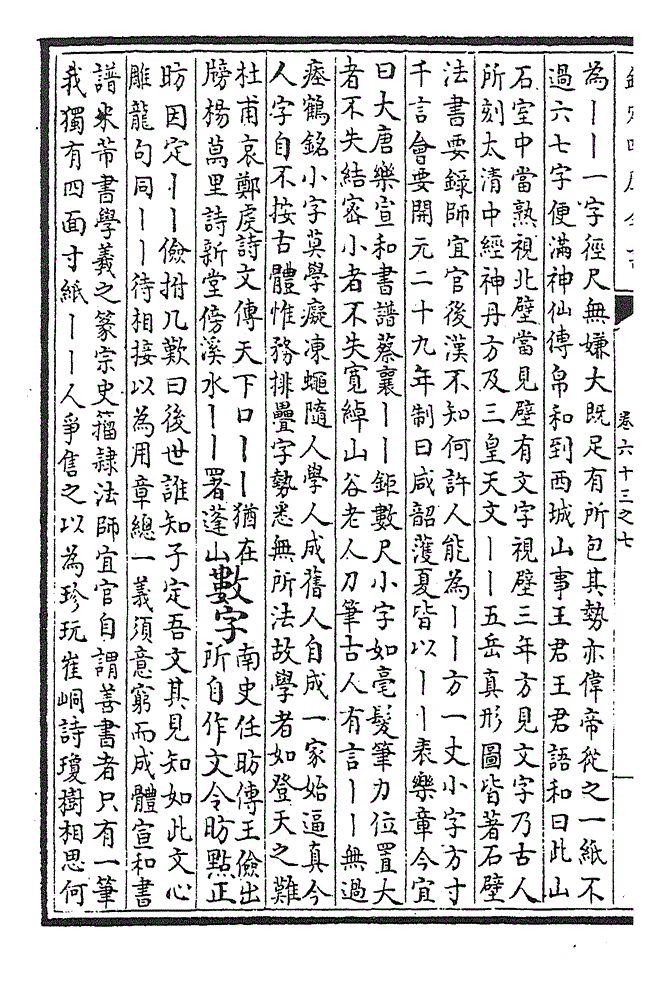 欽定四庫全書
卷六十三之七
為丨丨一字徑尺無嫌大既足有所包其勢亦偉帝從之一紙不
過六七字便滿神仙傳帛和到西城山事王君王君語和曰此山
石室中當熟視北壁當見壁有文字視壁三年方見文字乃古人
所刻太清中經神丹方及三皇天文丨丨五岳真形圖皆著石壁
法書要錄師宜官後漢不知何許人能為丨丨方一丈小字方寸
千言會要開元二十九年制曰咸韶濩夏皆以丨丨表樂章今宜
曰大唐樂宣和書譜蔡襄丨丨鉅數尺小字如毫髮筆力位置大
者不失結密小者不失寬綽山谷老人刀筆古人有言丨丨無過
瘞鶴銘小字莫學癡凍蠅隨人學人成舊人自成一家始逼真今
人字自不按古體惟務排疊字勢悉無所法故學者如登天之難
杜甫哀鄭虔詩文傳天下口丨丨猶在
牓楊萬里詩新堂傍溪水丨丨署蓬山
數字
南史任昉傳王儉出
所自作文令昉點正
昉因定丨丨儉拊几歎曰後世誰知子定吾文其見知如此文心
雕龍句同丨丨待相接以為用章總一義須意窮而成體宣和書
譜米芾書學羲之篆宗史籀隸法師宜官自謂善書者只有一筆
我獨有四面寸紙丨丨人爭售之以為珍玩崔峒詩瓊樹相思何